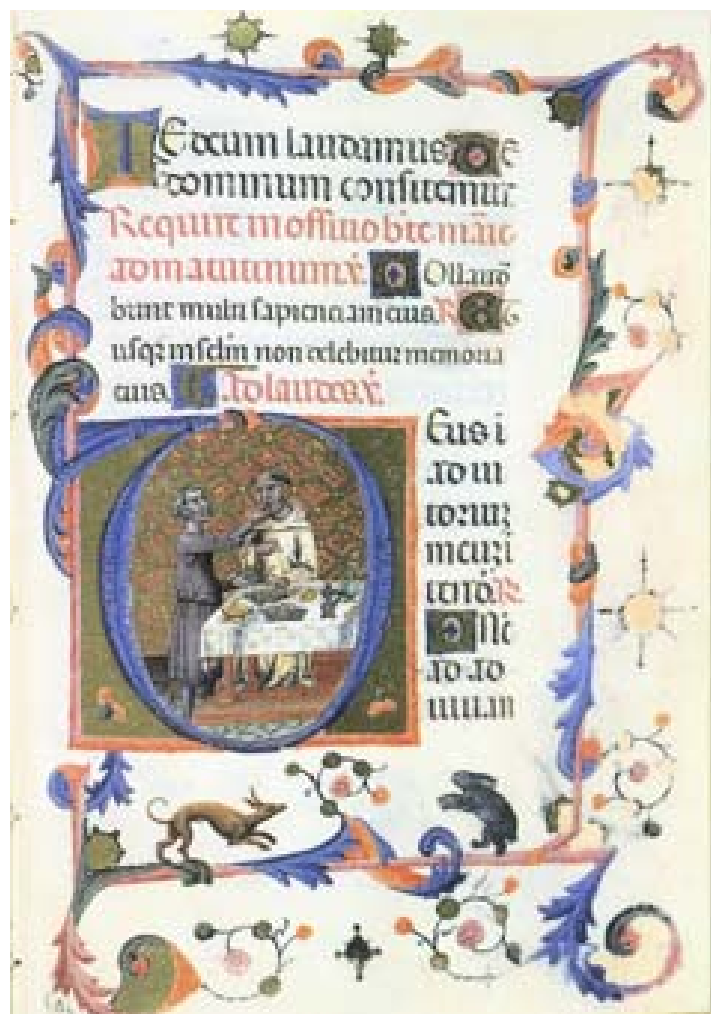 TE deum laudamus. Te
dominum confitemur
Require in offitio bte marie
ad matutinum. v. Collaud
bunt multi sapienciam eius. R. Et
usqz in sclm non delebitur memoria
eius. Ad laudes. v.
Deus i
adiu
torium
meum i
tend. R.
Dne
ad ad
iuuan